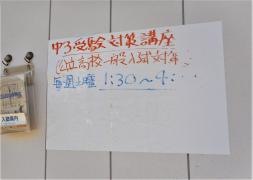 中3受験対策講座
公立高校一般入試対策
毎週土曜 1:30〜4:
入塾案内